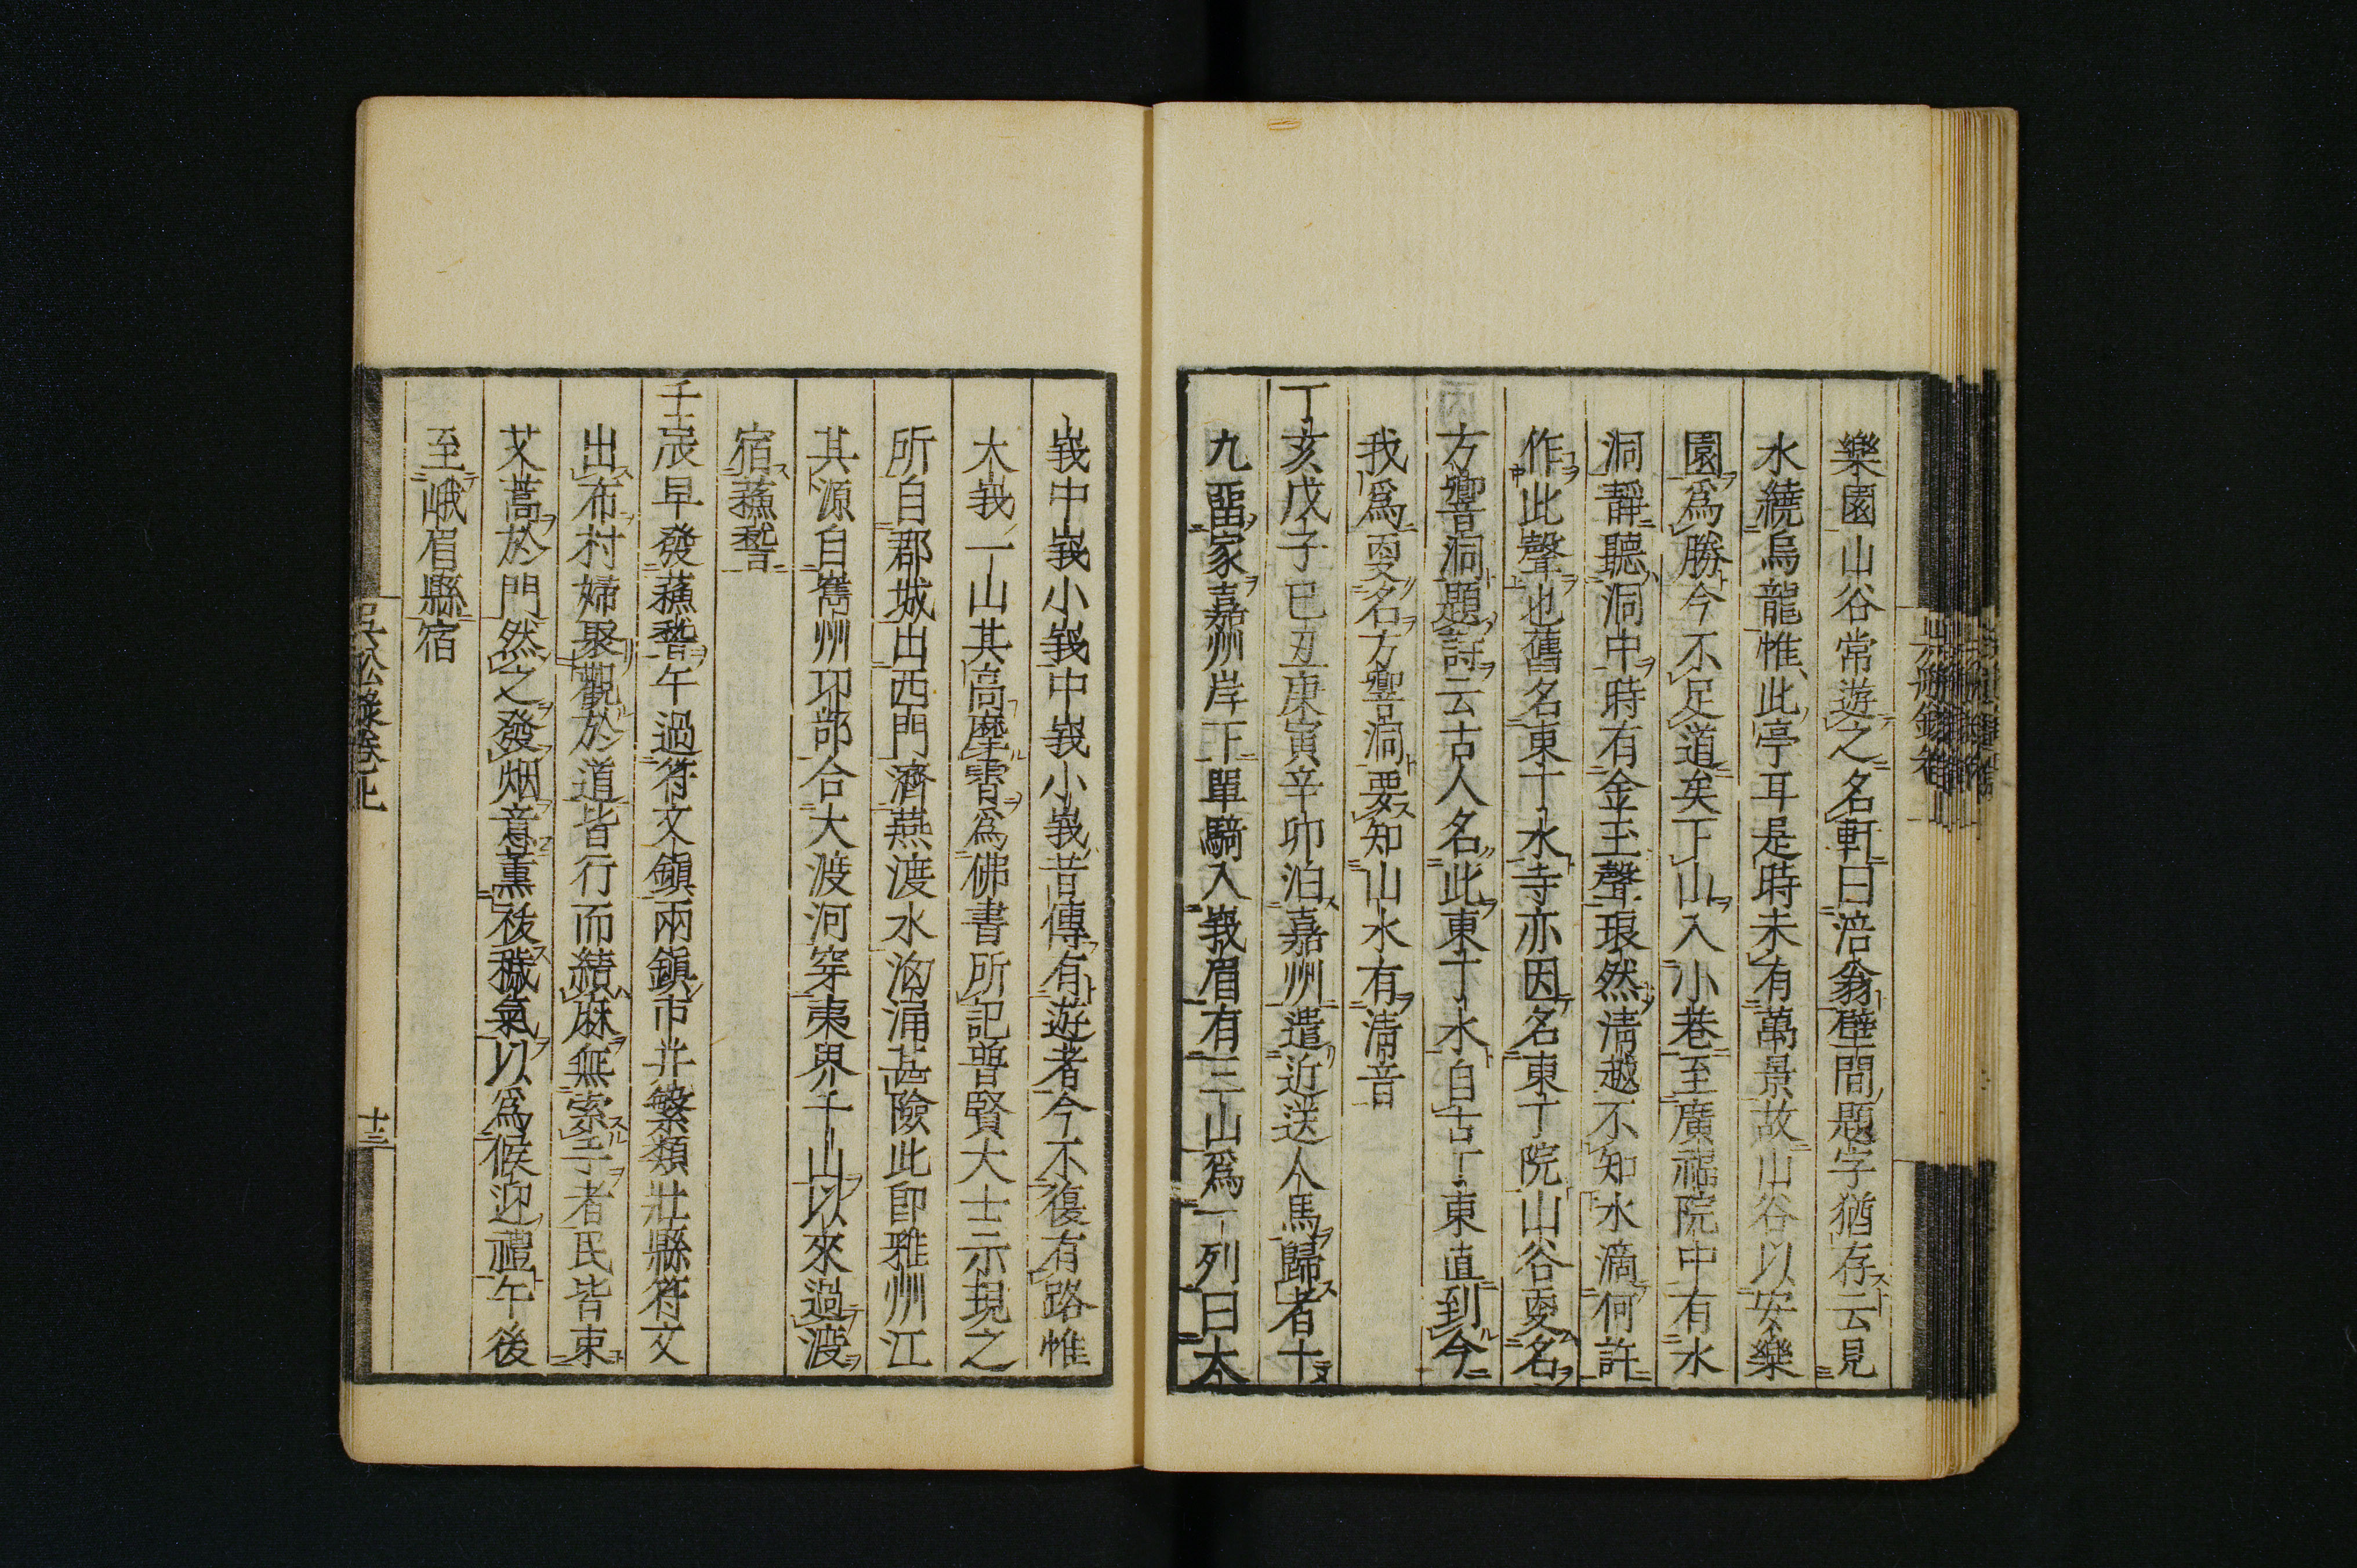 樂園山谷常遊之名軒曰涪翁壁間題字猶存云見
水繞烏龍惟此亭耳是時未有萬景故山谷以安樂
園爲勝今不足道矣下山入小巷至廣福院中有水
洞靜聽洞中時有金玉聲琅然清越不知水滴何許
作此聲也舊名東丁水寺亦因名東丁院山谷更名
方響洞題詩云古人名此東丁水自古丁東直到今
我爲更名方響洞要知山水有清音
丁亥戊子已丑庚寅辛卯泊嘉州遣近送人馬歸者十
九畱家嘉州岸下單騎入峩眉有三山爲一列曰大
峩中峩小峩中峩小峩昔傳有遊者今不復有路惟
大峩一山其高摩霄爲佛書所記普賢大士示現之
所自郡城出西門濟燕渡水洶涌甚險此卽雅州江
其源自嶲州邛部合大渡河穿夷界千山以來過渡
宿蘓稽
壬辰早發蘓稽午過符文鎭兩鎭市井繁類壯縣符文
出布村婦聚觀於道皆行而績麻無索手者民皆束
艾蒿於門然之發烟意薰祓穢氣以爲候迎禮午後
至峨眉縣宿
吳舩錄卷上
十三